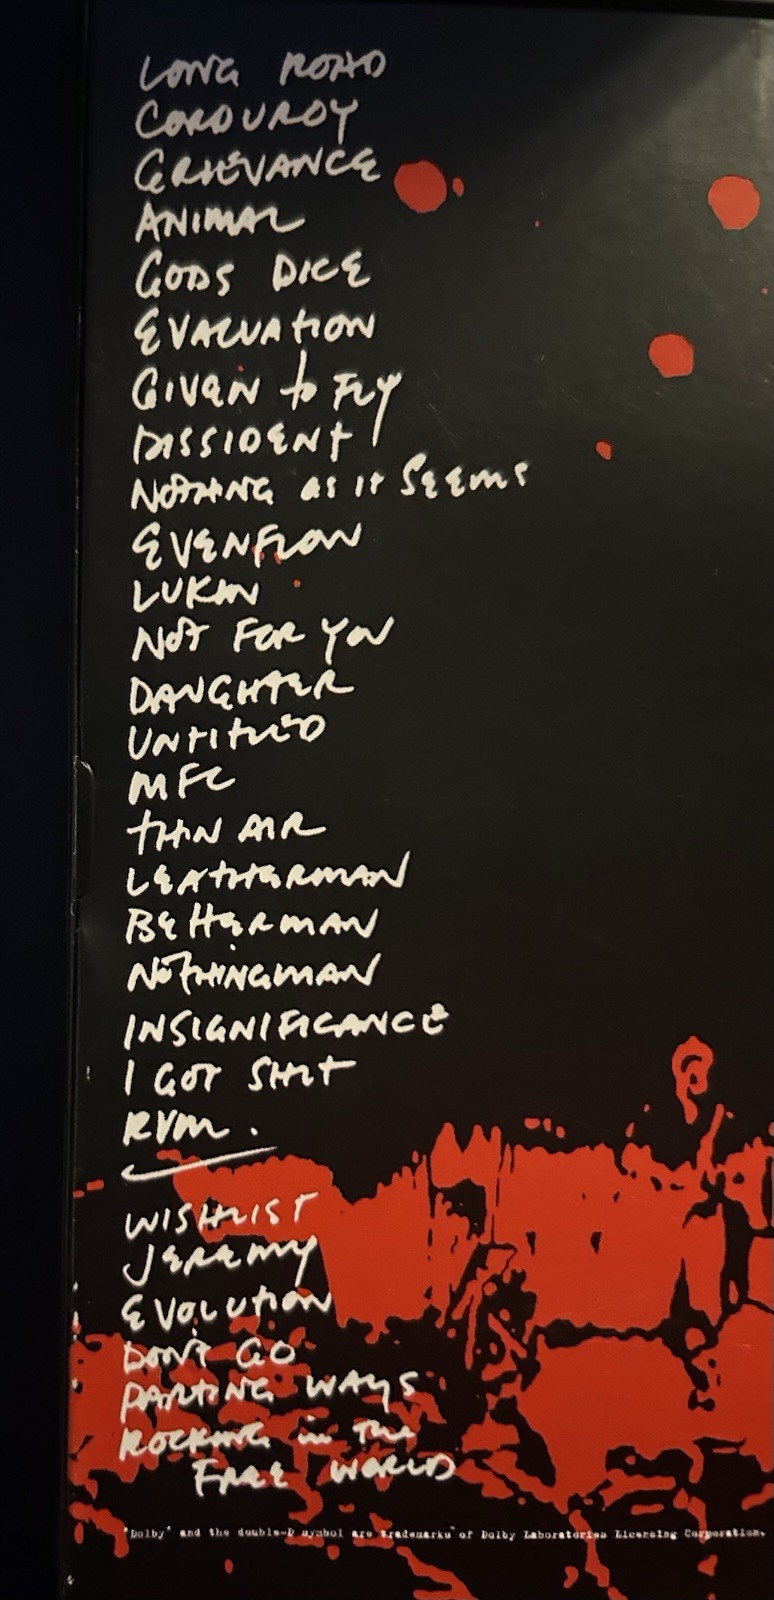 LONG ROAD
CORDUROY
GRIEVANCE
ANIMAL
GODS DICE
EVACUATION
GIVEN to FLY
DISSIDENT
NOTHING as it Seems
EVENFLOW
LUKIN
NOT FOR YOU
DAUGHTER
UNTITLED
MFC
THIN AIR
LEATHERMAN
BETTERMAN
NOTHINGMAN
INSIGNIFICANCE
I GOT SHIT
RVM.
WISHLIST
JEREMY
EVOLUTION
DON'T GO
PARTING WAYS
ROCKING in The
FREE WORLD
"Dolby" and the double-D symbol are trademarks of Dolby Laboratories Licensing Corporation.